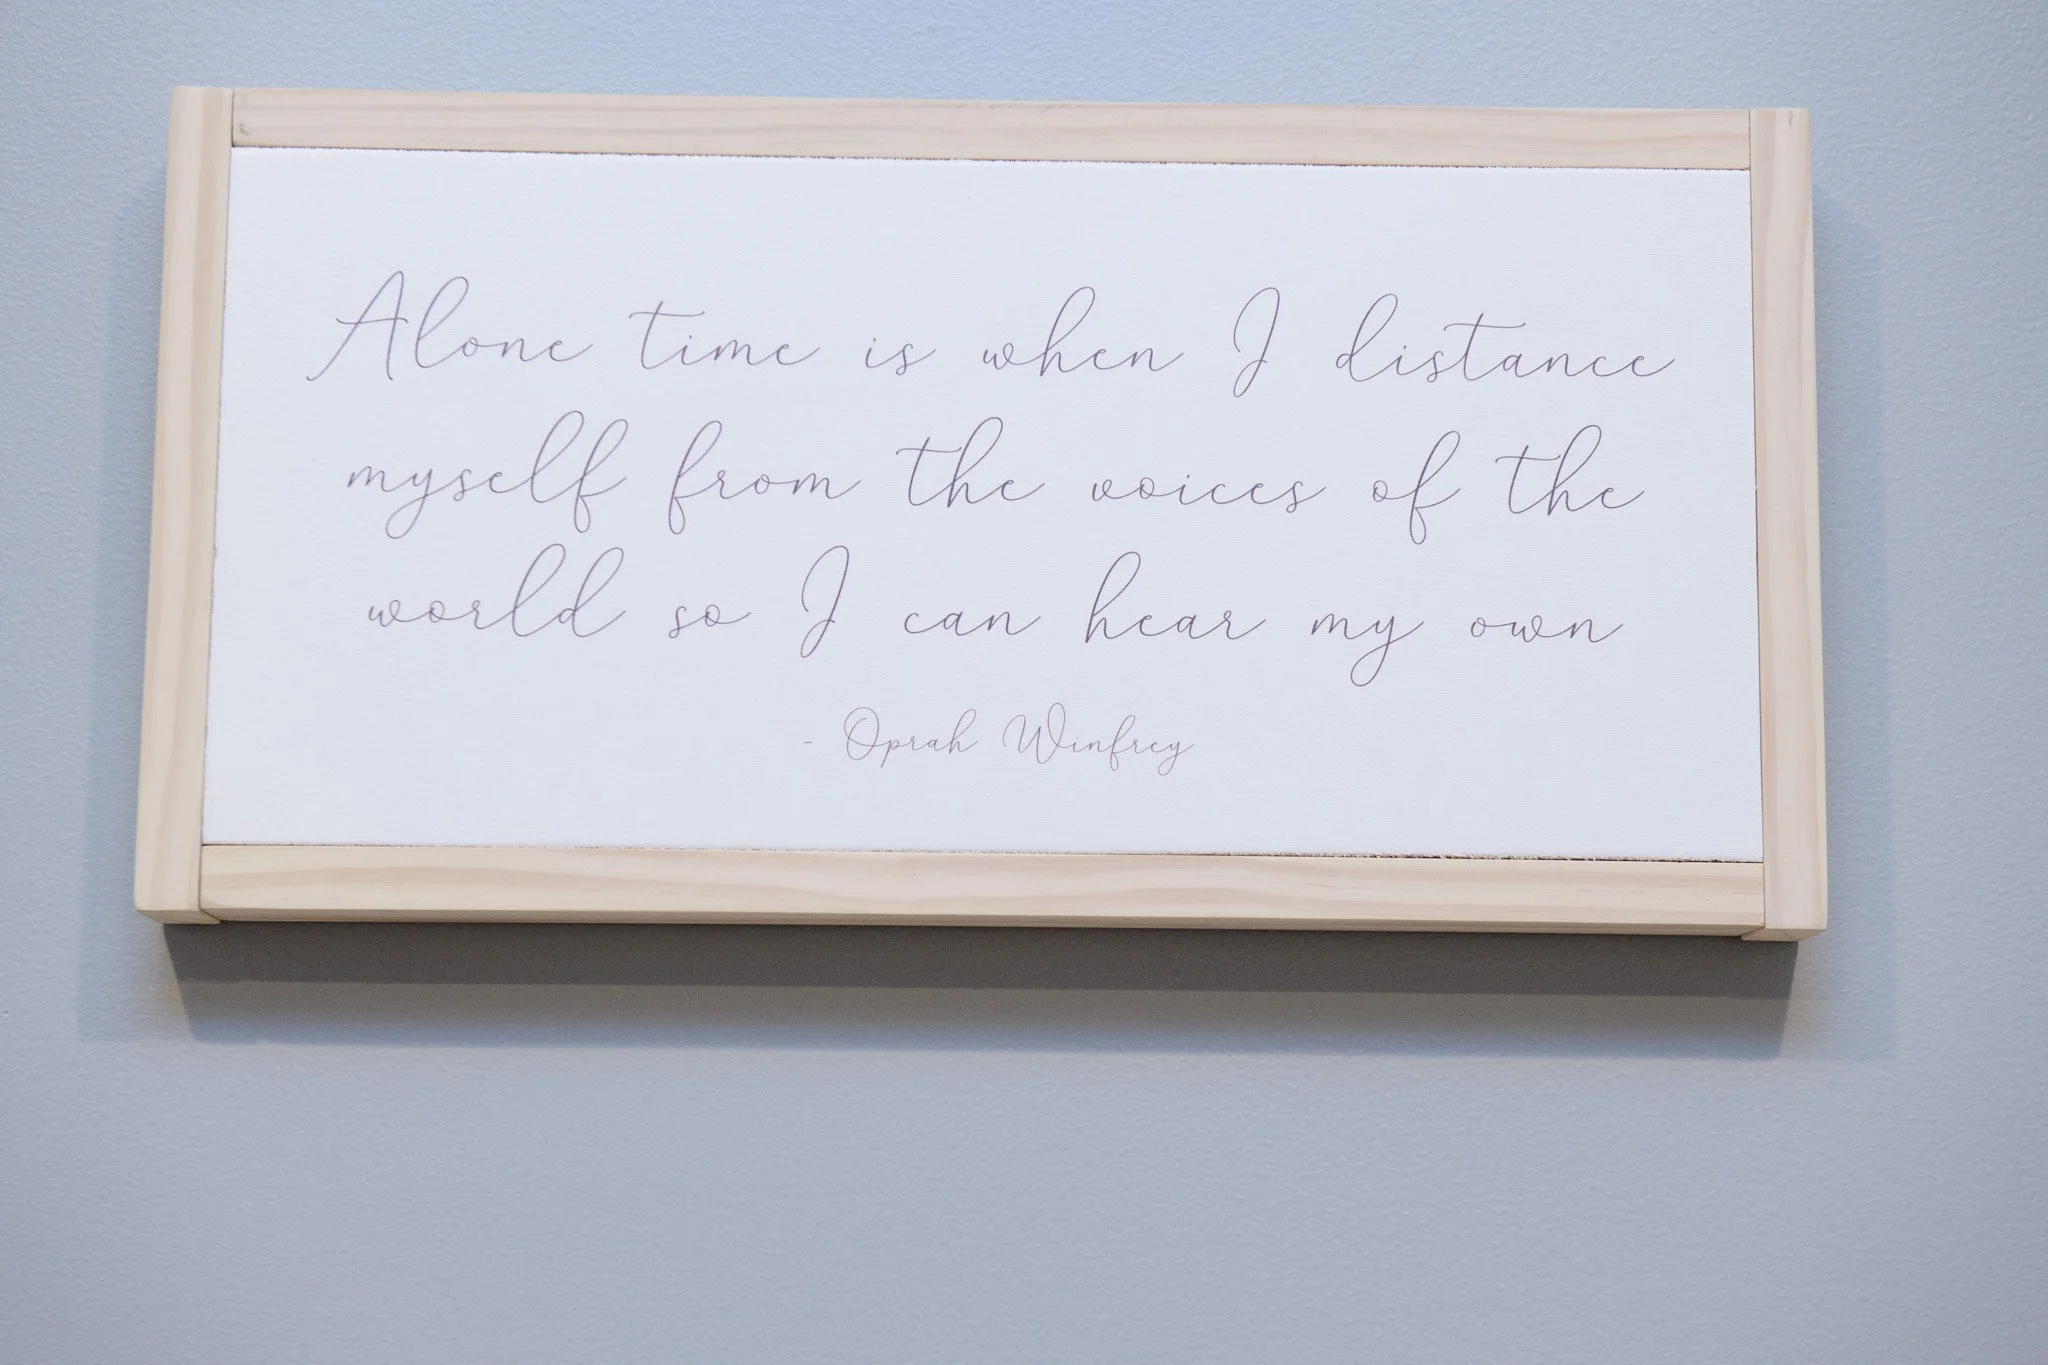 Alone time is when I distance
myself from the voices of the
world so I can hear my own
- Oprah Winfrey